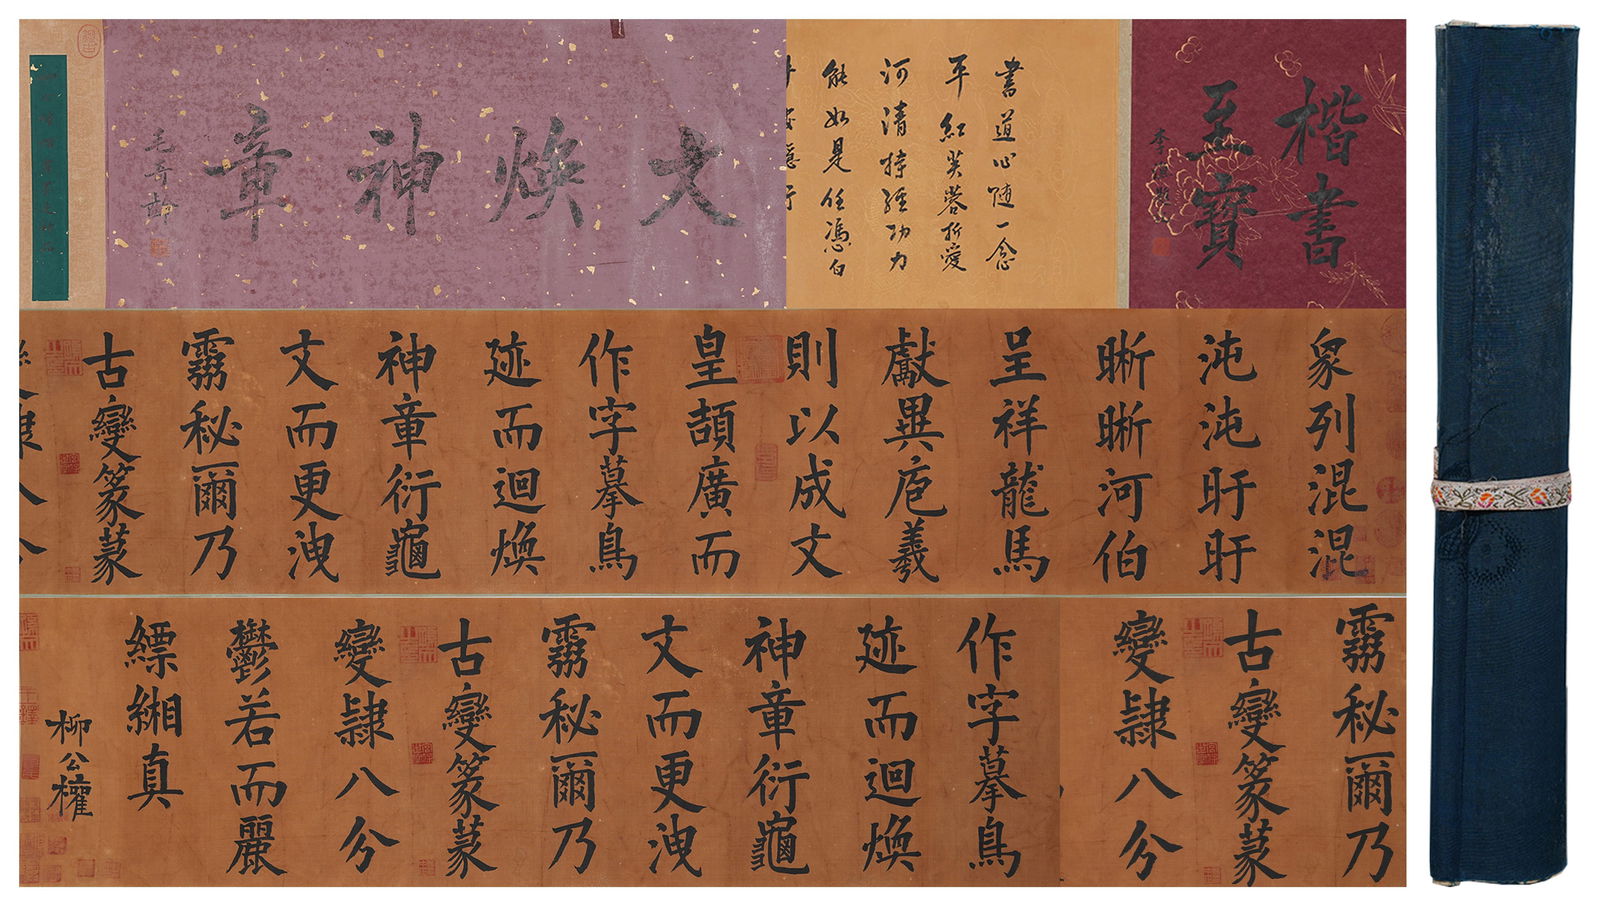 楷書
至寶
書道心隨一念
平紅芙蓉折愛
河清持經功力
能如是任憑白
文煥神章
毛奇齡
象列混混
沌沌盱盱
晣晣河伯
呈祥龍馬
獻異庖羲
則以成文
皇頡廣而
作字摹鳥
迹而迴煥
神章衍龜
文而更洩
霧秘爾乃
古變篆篆
霧秘爾乃
古變篆篆
變隸八分
作字摹鳥
迹而迴煥
神章衍龜
文而更洩
霧秘爾乃
古變篆篆
變隸八分
鬱若而麗
縹緗真
柳公權